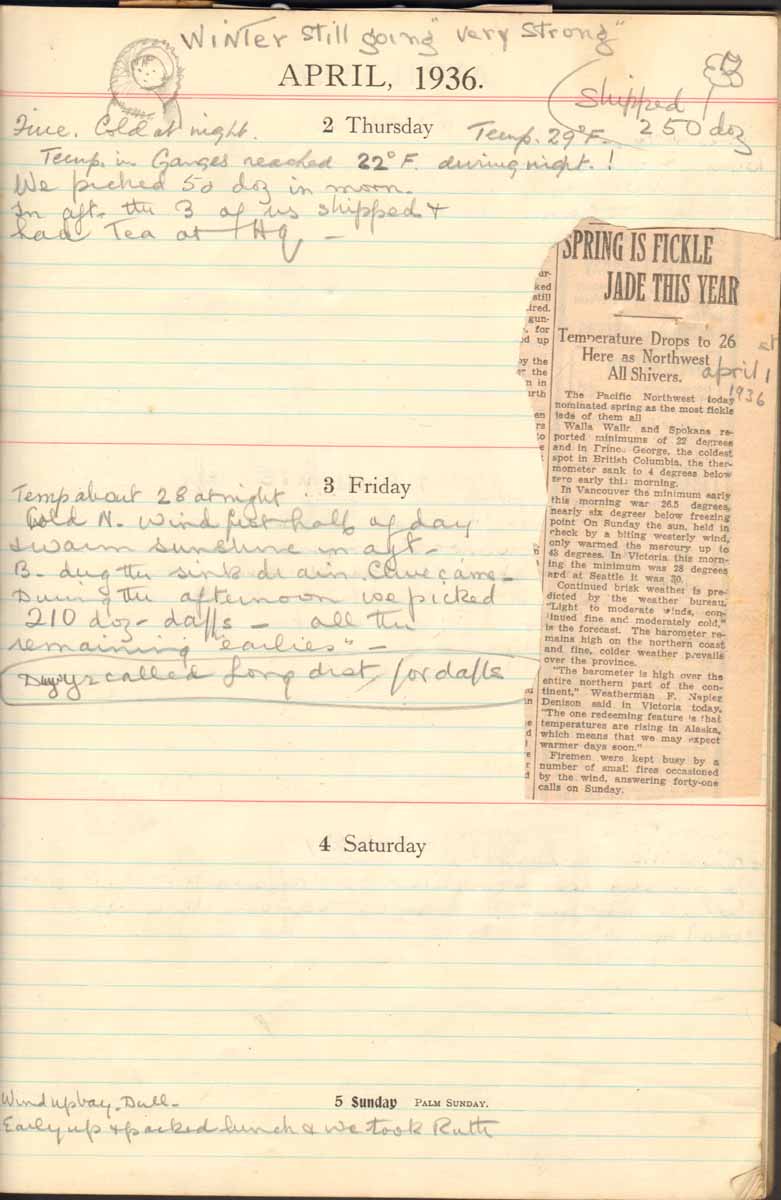 Winter still going "very strong"
APRIL, 1936.
(Shipped
250 doz
Fine. Cold at night.
2 Thursday
Temp. 29°F.
Temp. in Ganges reached 22°F. during night.!
We picked 50 doz in morn.
In aft. the 3 of us shipped &
had Tea at HQ –
SPRING IS FICKLE
JADE THIS YEAR
Temperature Drops to 26
Here as Northwest
All Shivers.
april 1st
1936
The Pacific Northwest today
nominated spring as the most fickle
jade of them all
Walla Walla and Spokane re-
ported minimums of 22 degrees
and in Prince George, the coldest
spot in British Columbia, the ther-
mometer sank to 4 degrees below
zero early this morning.
In Vancouver the minimum early
this morning was 26.5 degrees,
nearly six degrees below freezing
point On Sunday the sun, held in
check by a biting westerly wind,
only warmed the mercury up to
43 degrees. In Victoria this morn-
ing the minimum was 28 degrees
and at Seattle it was 30.
Continued brisk weather is pre-
dicted by the weather bureau.
"Light to moderate winds, con-
tinued fine and moderately cold,"
is the forecast. The barometer re-
mains high on the northern coast
and fine, colder weather prevails
over the province.
"The barometer is high over the
entire northern part of the con-
tinent," Weatherman F. Napier
Denison said in Victoria today,
"The one redeeming feature is that
temperatures are rising in Alaska,
which means that we may expect
warmer days soon."
Firemen were kept busy by a
number of small fires occasioned
by the wind, answering forty-one
calls on Sunday.
3 Friday
Temp about 28 at night
Cold N. wind first half of day
& warm sunshine in aft –
B – dug the sink drain. Clive came –
During the afternoon we picked
210 doz – daffs – all the
remaining "earlies" –
called long dist, for daffs
4 Saturday
5 Sunday PALM SUNDAY.
Wind up bay. Dull –
Early up & packed lunch & we took Ruth